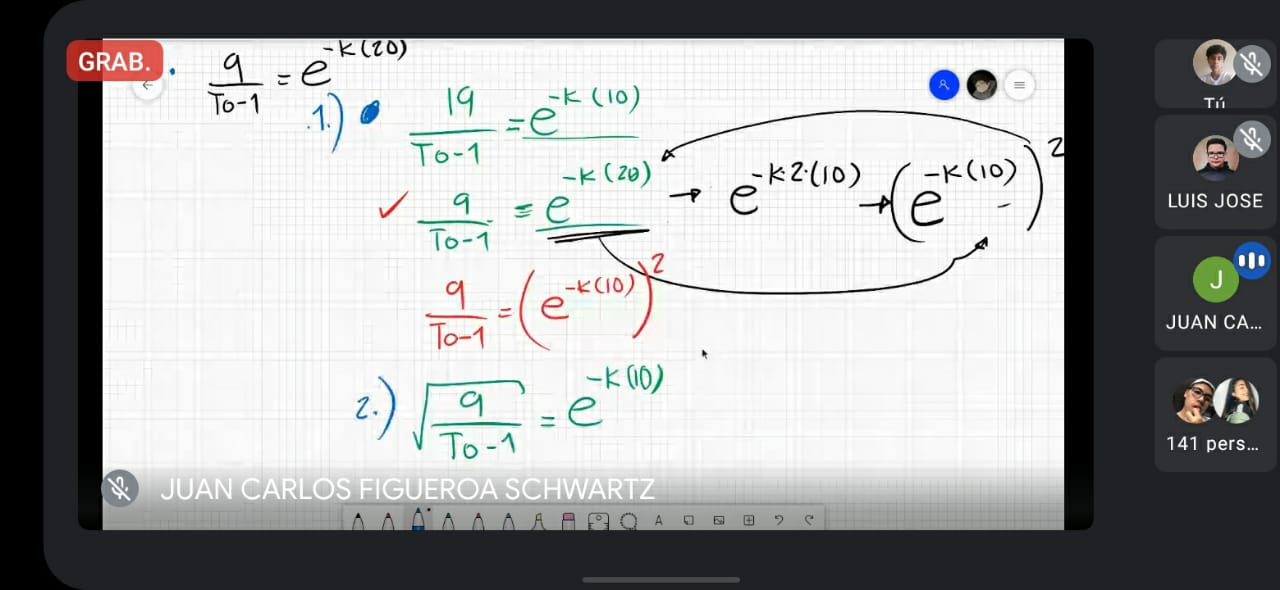 GRAB.
9/(To-1) = e^(-k(20))
1.) 19/(To-1) = e^(-k(10))
✓ 9/(To-1) = e^(-k(20)) → e^(-k·2·(10)) → (e^(-k(10)))^2
9/(To-1) = (e^(-k(10)))^2
2.) √(9/(To-1)) = e^(-k(10))
JUAN CARLOS FIGUEROA SCHWARTZ
A
Tú
LUIS JOSE
J
JUAN CA...
141 pers...